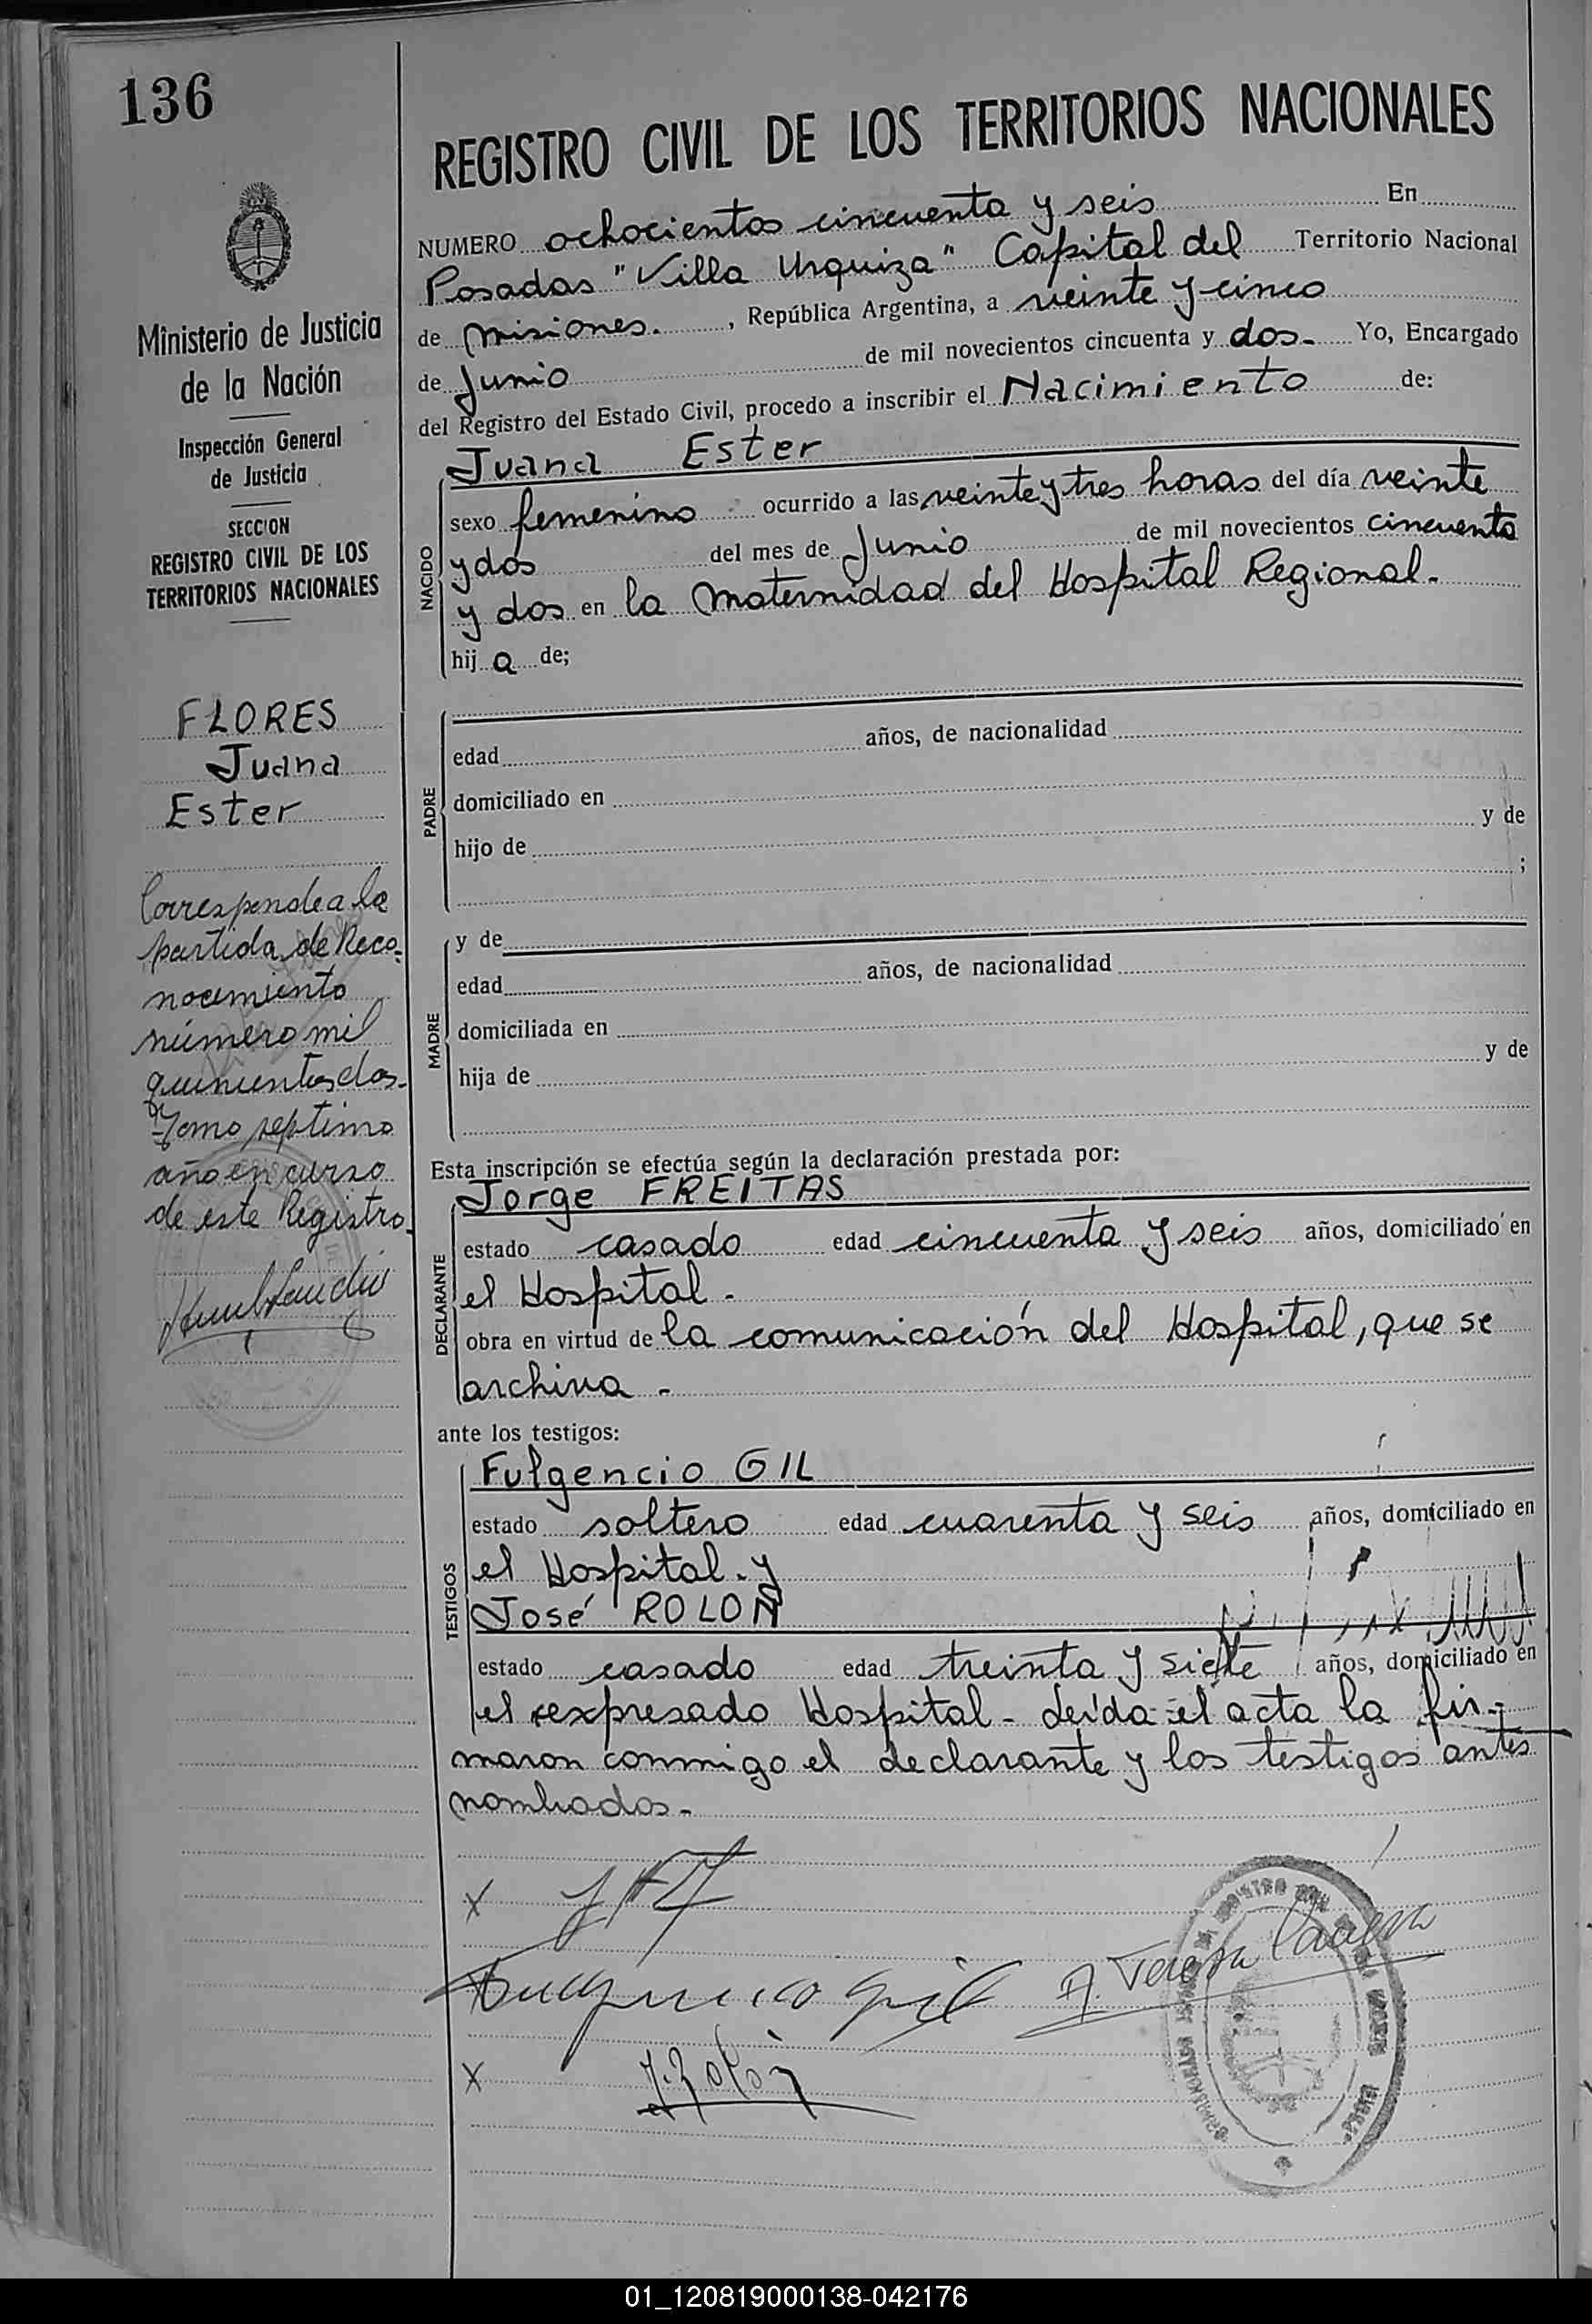 136
REGISTRO CIVIL DE LOS TERRITORIOS NACIONALES
Ministerio de Justicia
de la Nación
Inspección General
de Justicia
SECCION
REGISTRO CIVIL DE LOS
TERRITORIOS NACIONALES
FLORES
Juana
Ester
Corresponde a la
partida de Reco-
nocimiento
número mil
quinientos dos-
Tomo septimo
año en curso
de este Registro.
NUMERO ochocientos cincuenta y seis En
Posadas "Villa Urquiza" Capital del Territorio Nacional
de Misiones. , República Argentina, a veinte y cinco
de Junio de mil novecientos cincuenta y dos- Yo, Encargado
del Registro del Estado Civil, procedo a inscribir el Nacimiento de:
Juana Ester
NACIDO
sexo femenino ocurrido a las veinte y tres horas del día veinte
y dos del mes de Junio de mil novecientos cincuenta
y dos en la Maternidad del Hospital Regional.
hij a de;
PADRE
edad años, de nacionalidad
domiciliado en
hijo de y de
;
MADRE
y de
edad años, de nacionalidad
domiciliada en
hija de y de
Esta inscripción se efectúa según la declaración prestada por:
Jorge FREITAS
DECLARANTE
estado casado edad cincuenta y seis años, domiciliado en
el Hospital.
obra en virtud de la comunicación del Hospital, que se
archiva.
ante los testigos:
Fulgencio GIL
TESTIGOS
estado soltero edad cuarenta y seis años, domiciliado en
el Hospital. y
José ROLON
estado casado edad treinta y siete años, domiciliado en
el expresado Hospital - Leída el acta la fir-
maron conmigo el declarante y los testigos antes
nombrados-
X
Fulgencio Gil
A. Teresa
X
J. Rolón
01_120819000138-042176